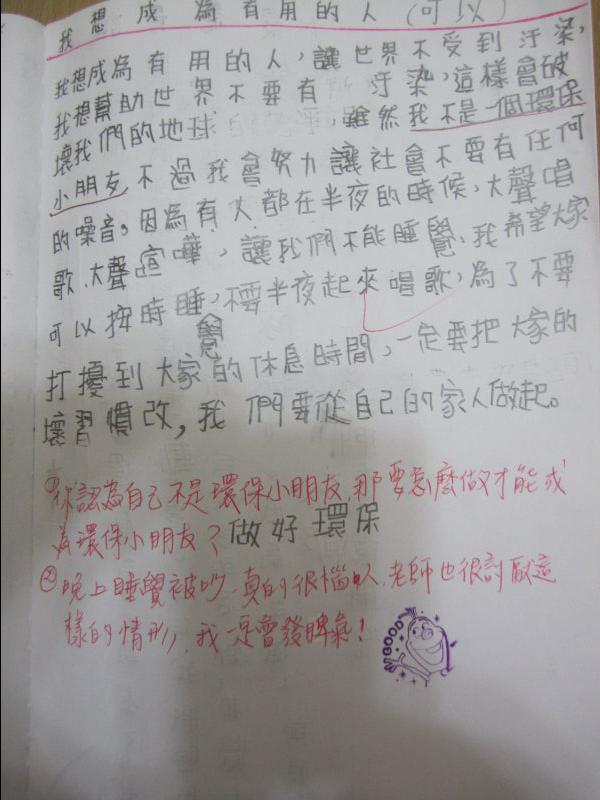 我想成為有用的人(可以)
我想成為有用的人,讓世界不受到汙染,
我想幫助世界不要有汙染,這樣會破
壞我們的地球,雖然我不是一個環保
小朋友不過我會努力讓社會不要有任何
的噪音。因為有人都在半夜的時候,大聲唱
歌、大聲喧嘩,讓我們不能睡覺,我希望大家
可以按時睡覺,不要半夜起來唱歌,為了不要
打擾到大家的休息時間,一定要把大家的
壞習慣改,我們要從自己的家人做起。
①你認為自己不是環保小朋友,那要怎麼做才能成
為環保小朋友?做好環保
②晚上睡覺被吵,真的很惱人,老師也很討厭這
樣的情形,我一定會發脾氣!
GOOD